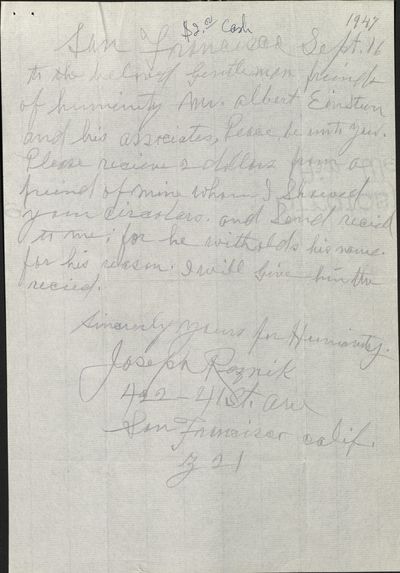 $2.00 Cash
1947
San Francisco Sept. 16
to the beloved Gentlemen friends
of humanity Mr. albert Einstein
and his associates, Peace be unto you.
Please recieve 2 dollars from a
friend of mine whom I Showed
your circulars. and Send recied
to me; for he witholds his name.
for his reason. I will Give him the
recied.
Sincerely yours for Humanity.
Joseph Roznik
422-41st. ave
San Francisco calif.
Z 21